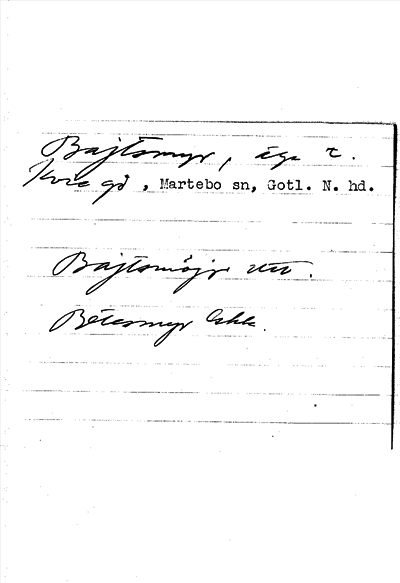 Bajtsmyr, äga t.
Kvie gd, Martebo sn, Gotl. N. hd.
Bajtsmöjr
Betesmyr